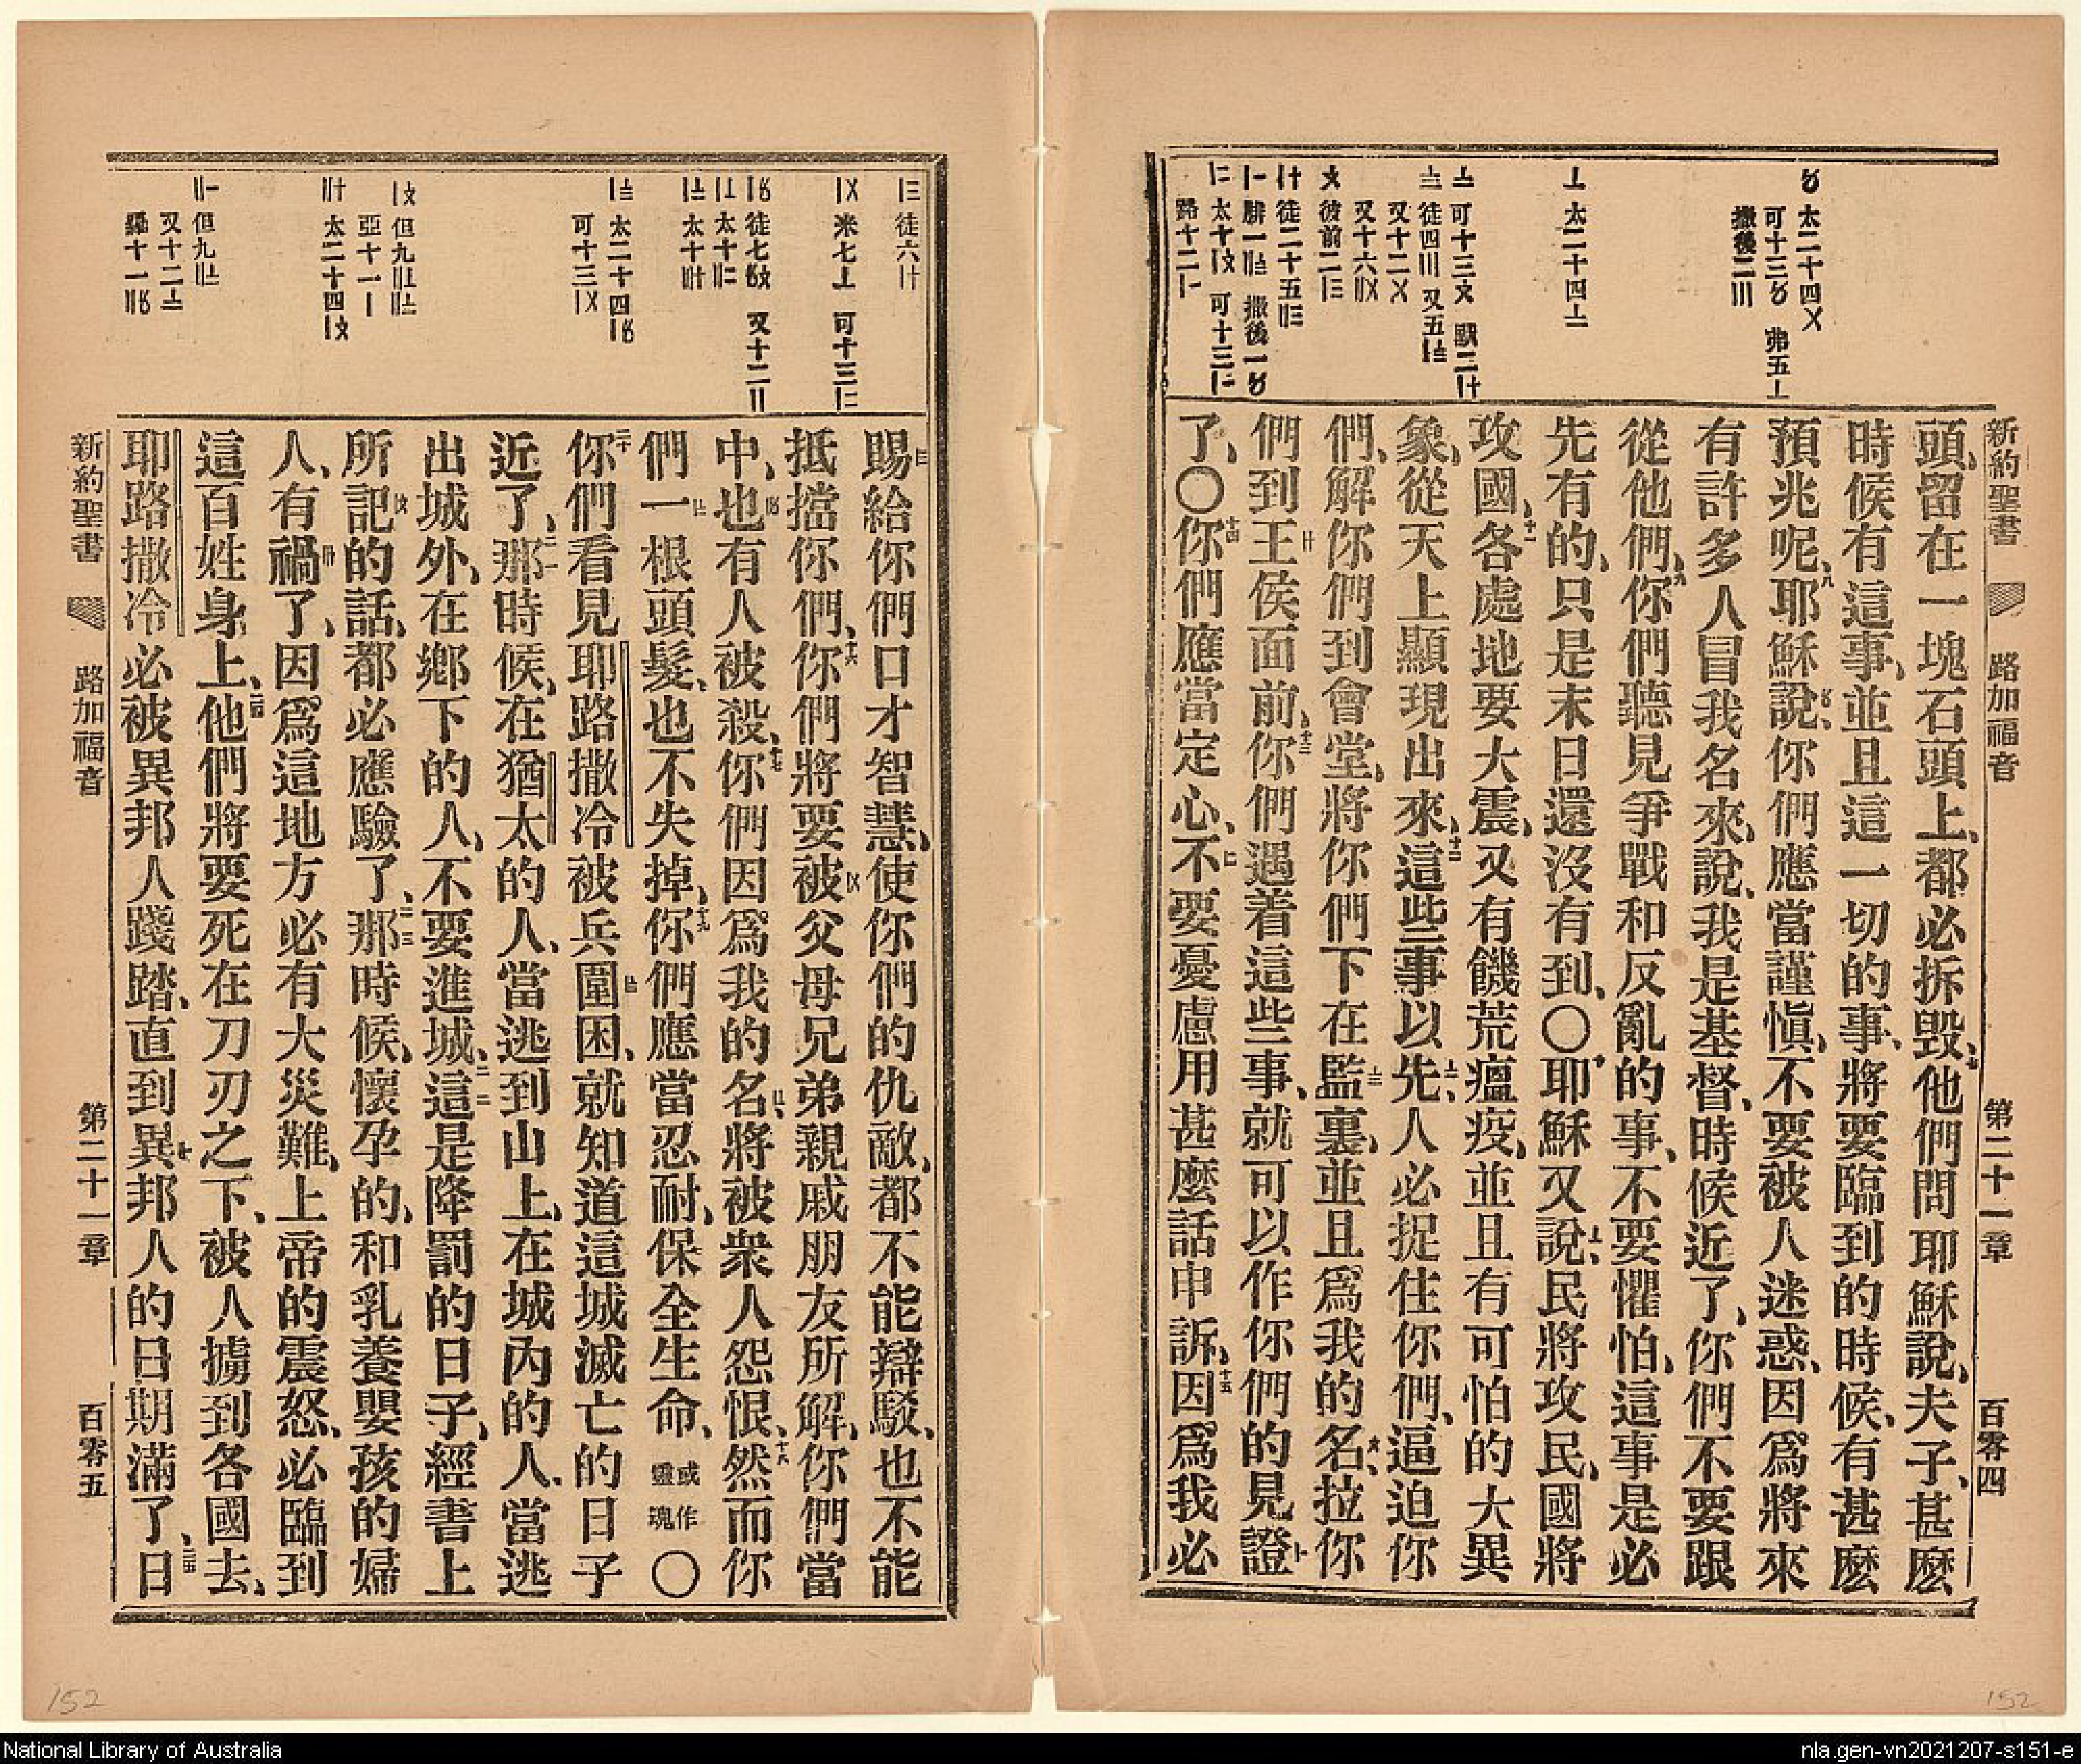 新約聖書 路加福音 第二十一章 百零四
太二十四〤
可十三〥 弗五〦
撒後二〣
太二十四〦
徒四〣
又十二〤
頭、留在一塊石頭上、都必拆毀、他們問耶穌說、夫子、甚麽
時候有這事、並且這一切的事、將要臨到的時候、有甚麽
預兆呢、耶穌說、你們應當謹愼、不要被人迷惑、因爲將來
有許多人冒我名來、說、我是基督、時候近了、你們不要跟
從他們、你們聽見爭戰和反亂的事、不要懼怕、這事是必
先有的、只是末日還沒有到、〇耶穌又說、民將攻民、國將
攻國、各處地要大震、又有饑荒瘟疫、並且有可怕的大異
象、從天上顯現出來、這些事以先、人必捉住你們、逼迫你
們、解你們到會堂、將你們下在監裏、並且爲我的名、拉你
們到王侯面前、你們遇着這些事、就可以作你們的見證
了、〇你們應當定心、不要憂慮用甚麽話申訴、因爲我必
徒六〡十
賜給你們口才智慧、使你們的仇敵、都不能辯駁、也不能
抵擋你們、你們將要被父母兄弟親戚朋友所解、你們當
中、也有人被殺、你們因爲我的名、將被衆人怨恨、然而你
們一根頭髮、也不失掉、你們應當忍耐、保全生命、或作靈魂〇
你們看見耶路撒冷被兵圍困、就知道這城滅亡的日子
近了、那時候、在猶太的人、當逃到山上、在城內的人、當逃
出城外、在鄉下的人、不要進城、這是降罰的日子、經書上
所記的話、都必應驗了、那時候、懷孕的、和乳養嬰孩的婦
人、有禍了、因爲這地方必有大災難、上帝的震怒、必臨到
這百姓身上、他們將要死在刀刃之下、被人擄到各國去、
耶路撒冷必被異邦人踐踏、直到異邦人的日期滿了、日
新約聖書 路加福音 第二十一章 百零五
152
152
National Library of Australia
nla.gen-vn2021207-s151-e